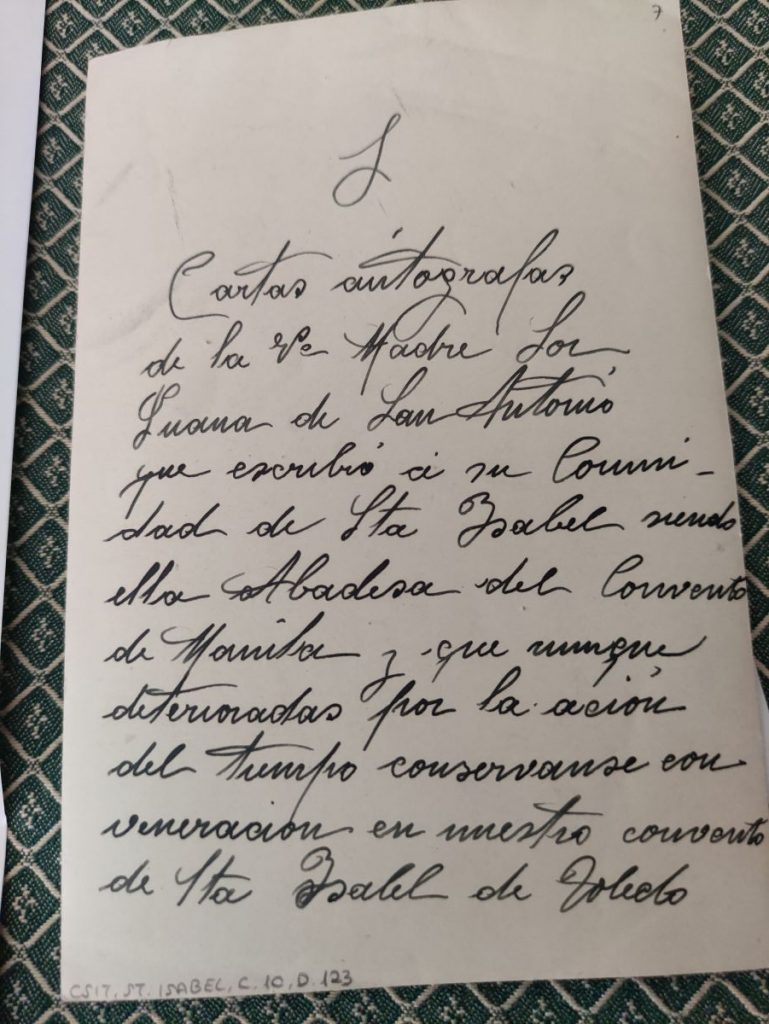 7
J
Cartas áutografas
de la Ve Madre Sor
Juana de San Antonio
que escribió á su Comuni-
dad de Sta Isabel siendo
ella Abadesa del Convento
de Manila y que aunque
deterioradas por la ación
del tiempo conservanse con
veneracion en nuestro convento
de Sta Isabel de Toledo
CSIT, ST. ISABEL, C. 10, D. 123